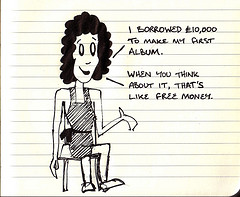 I BORROWED £10,000
TO MAKE MY FIRST
ALBUM.
WHEN YOU THINK
ABOUT IT, THAT'S
LIKE FREE MONEY.